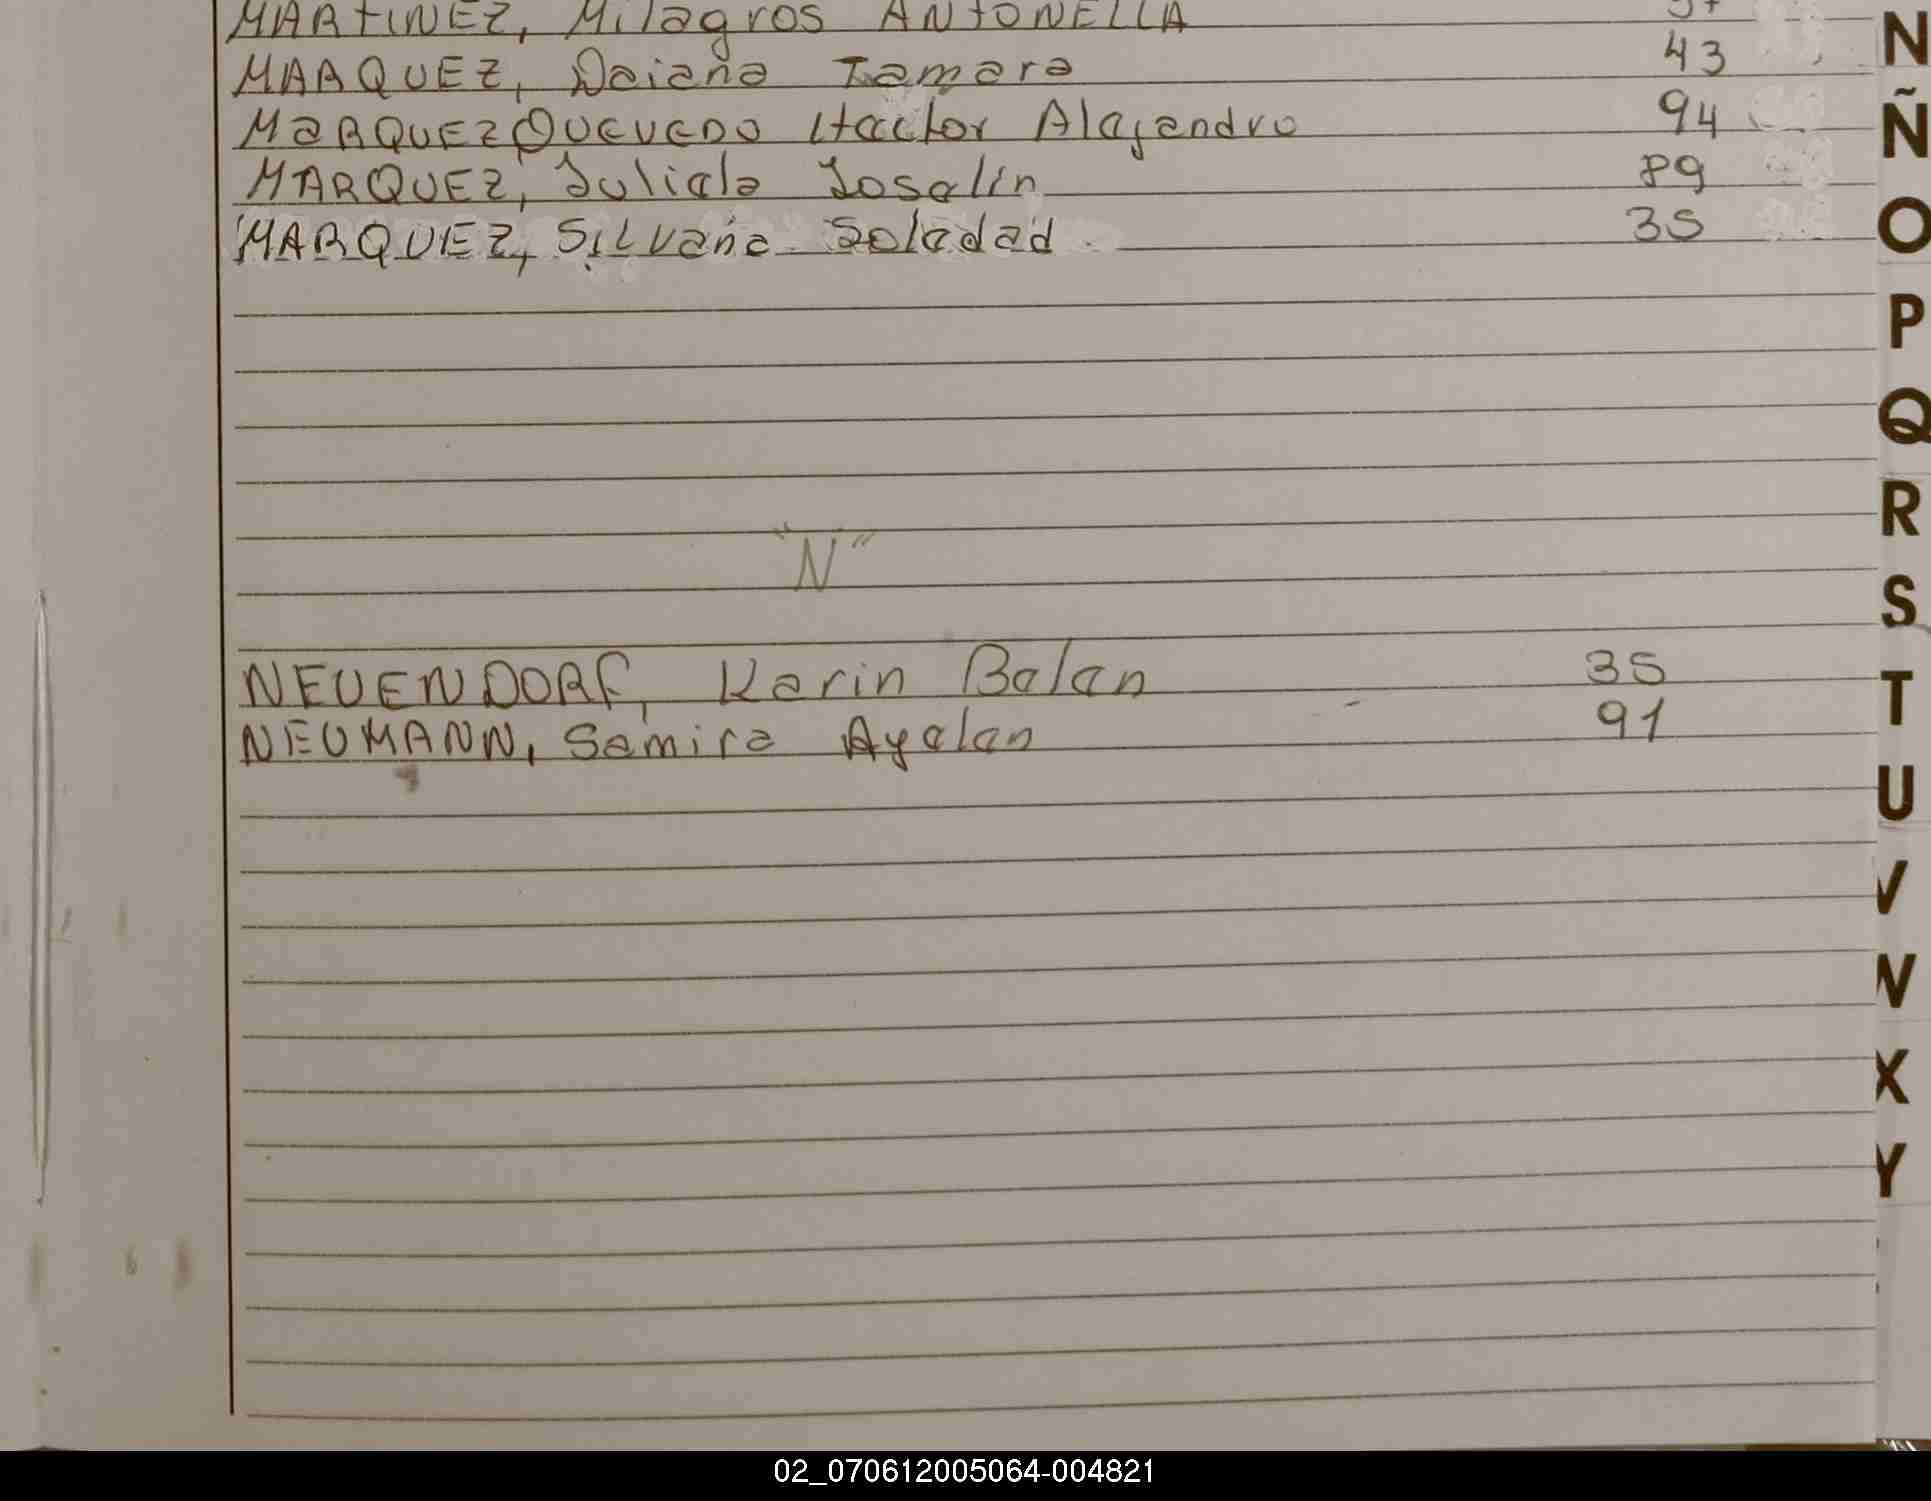 MARTINEZ, Milagros ANTONELLA
MARQUEZ, Daiana Tamara 43
MARQUEZ QUEVEDO Hector Alejandro 94
MARQUEZ, Julieta Joselin 89
MARQUEZ, SILVana Soledad 35
"N"
NEUENDORF, Karin Belen 35
NEUMANN, Samira Ayelen 91
N
Ñ
O
P
Q
R
S
T
U
V
W
X
Y
02_070612005064-004821